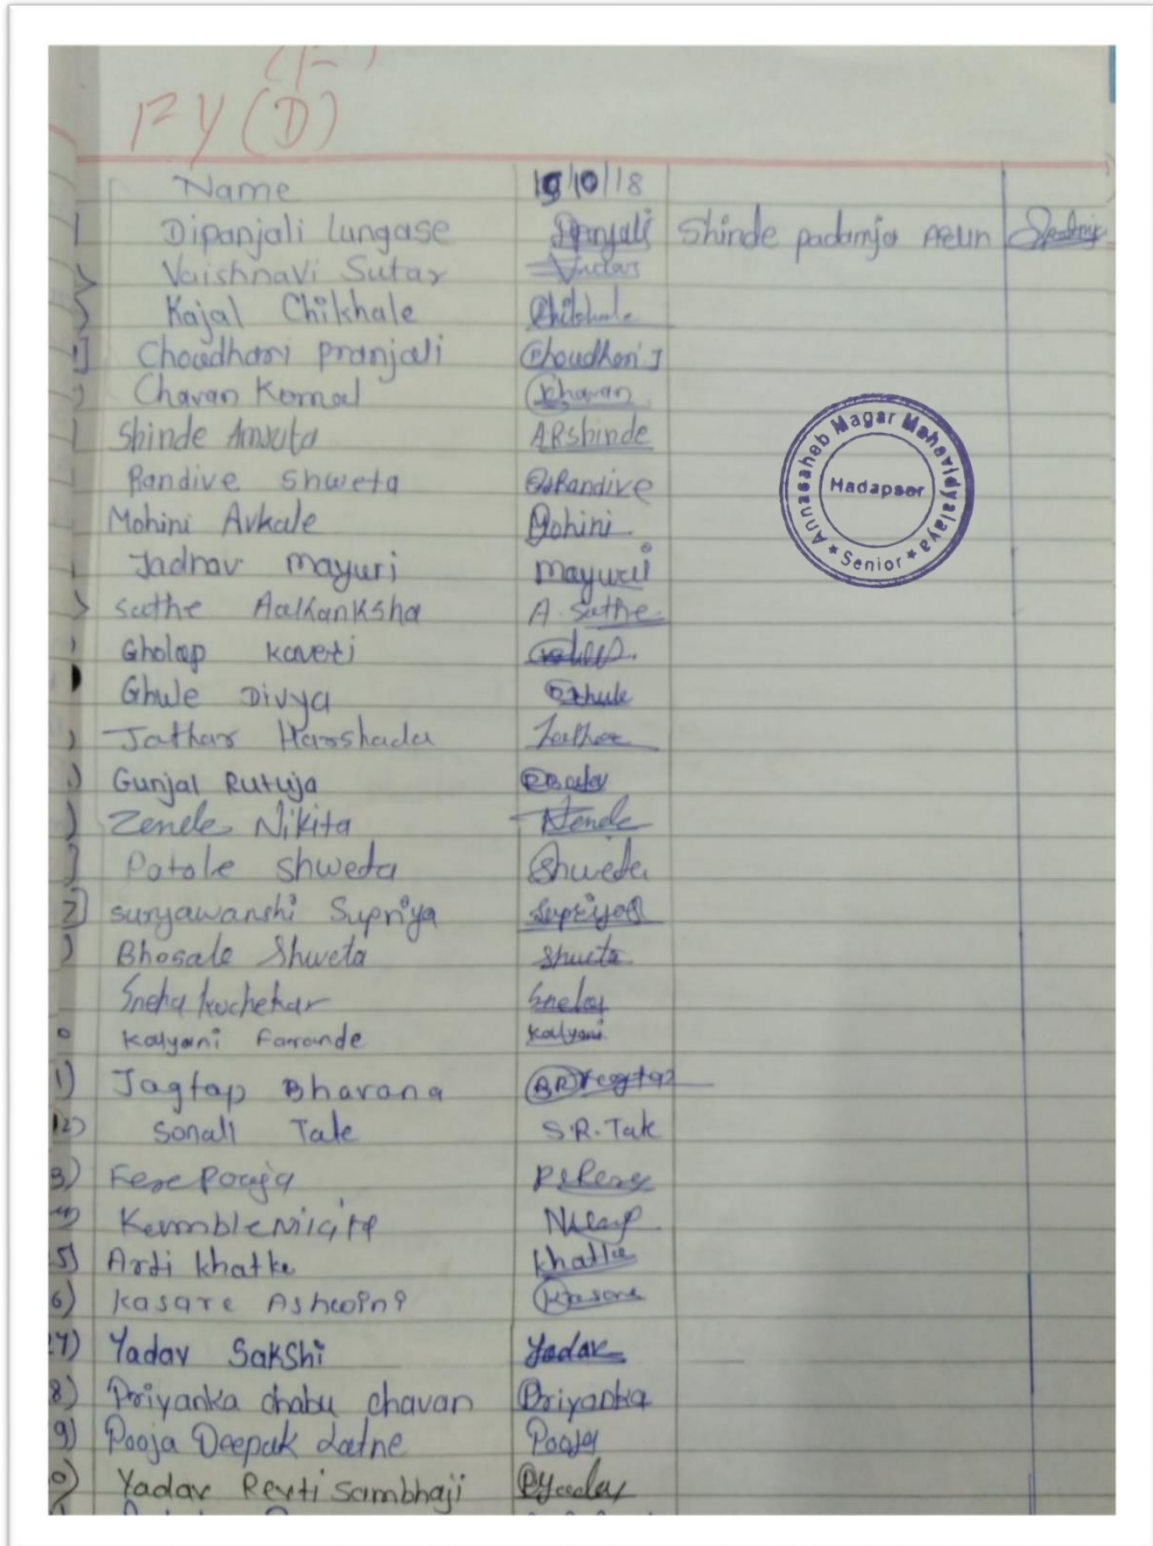 FY (D)
Name 19/10/18
Dipanjali Lungase Dpanjali Shinde padamja Arun
Vaishnavi Sutar Sutar
Kajal Chikhale Chikhale
Choudhari Pranjali Choudhari
Chavan Komal Chavan
Shinde Amruta ARShinde
Randive Shweta Randive
Mohini Avkale Mohini
Jadhav Mayuri Mayuri
Sathe Aalkanksha A. Sathe
Gholap Kaveri
Ghule Divya Ghule
Jathar Harshada Jathar
Gunjal Rutuja
Zende Nikita Nzende
Patole Shweda Shweda
2] Suryawanshi Supriya Supriya
Bhosale Shweta Shweta
Sneha Kuchekar Sneha
0 Kalyani Farande Kalyani
1) Jagtap Bhavana
12) Sonali Tak S.R.Tak
3) Fere Pooja
Kamble
5) Arti Khatke Khatke
6) Kasare Ashwini Kasare
27) Yadav Sakshi Yadav
8) Priyanka dhabu chavan Priyanka
9) Pooja Deepak Latne Pooja
0) Yadav Revti Sambhaji RYadav
Annasaheb Magar Mahavidyalaya
Hadapsar
★ Senior ★